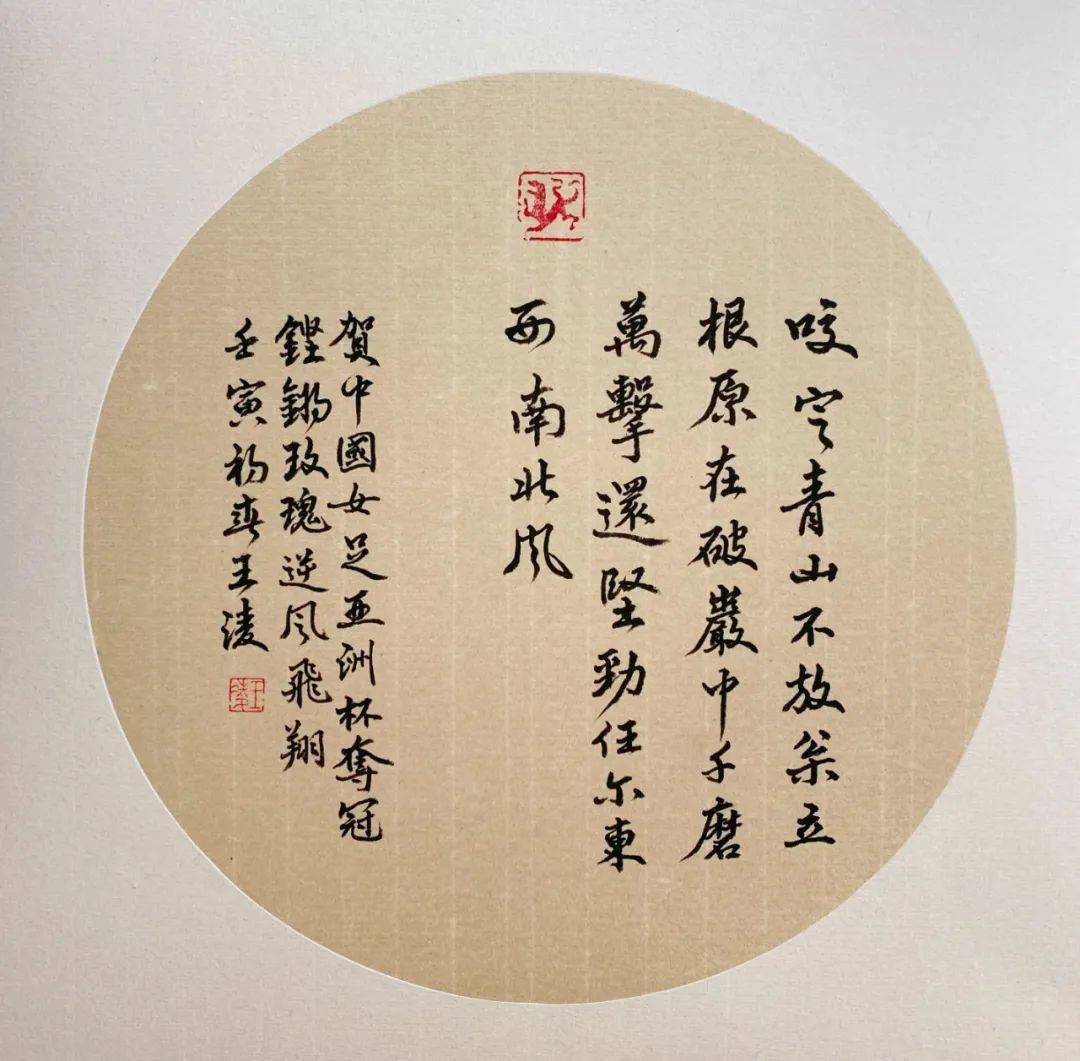 咬定青山不放枀立
根原在破巖中千磨
萬擊還堅勁任尔東
西南北风
賀中國女足亞洲杯奪冠
鏗鏘玫瑰逆风飛翔
壬寅初春王淩